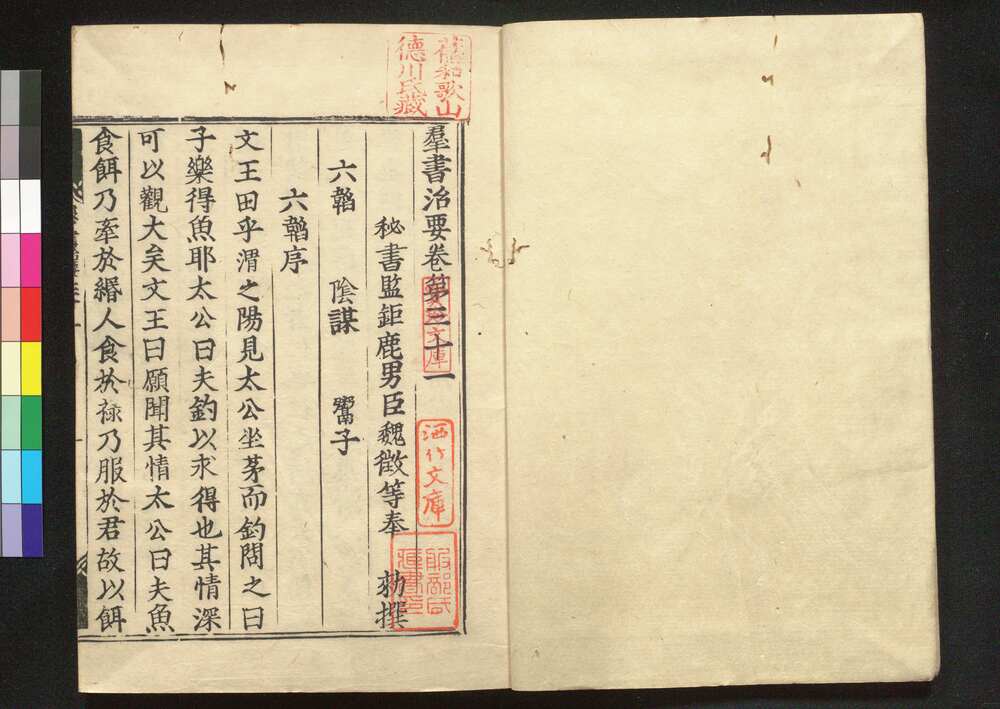 羣書治要卷第三十一
秘書監鉅鹿男臣魏徵等奉 勑撰
六韜 陰謀 鬻子
六韜序
文王田乎渭之陽見太公坐茅而釣問之曰
子樂得魚耶太公曰夫釣以求得也其情深
可以觀大矣文王曰願聞其情太公曰夫魚
食餌乃牽於緡人食於祿乃服於君故以餌
舊和歌山
德川氏藏
洒竹文庫
服部氏